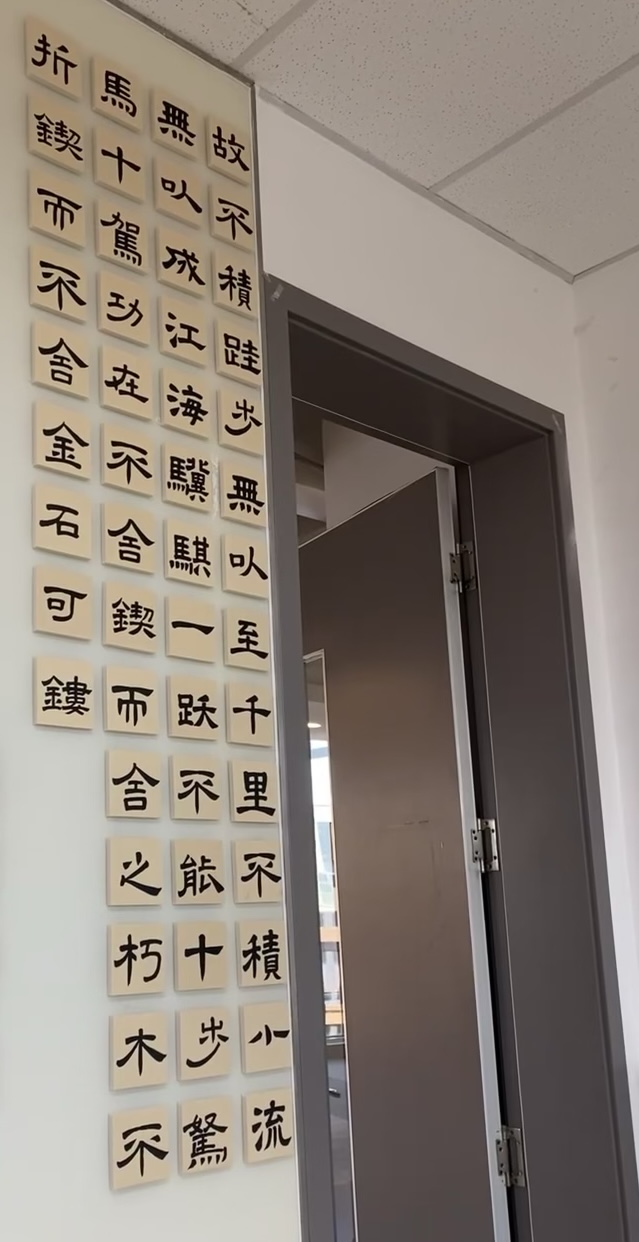 故不積跬步無以至千里不積小流
無以成江海驥騏一跃不能十步駑
馬十駕功在不舍鍥而舍之朽木不
折鍥而不舍金石可鏤